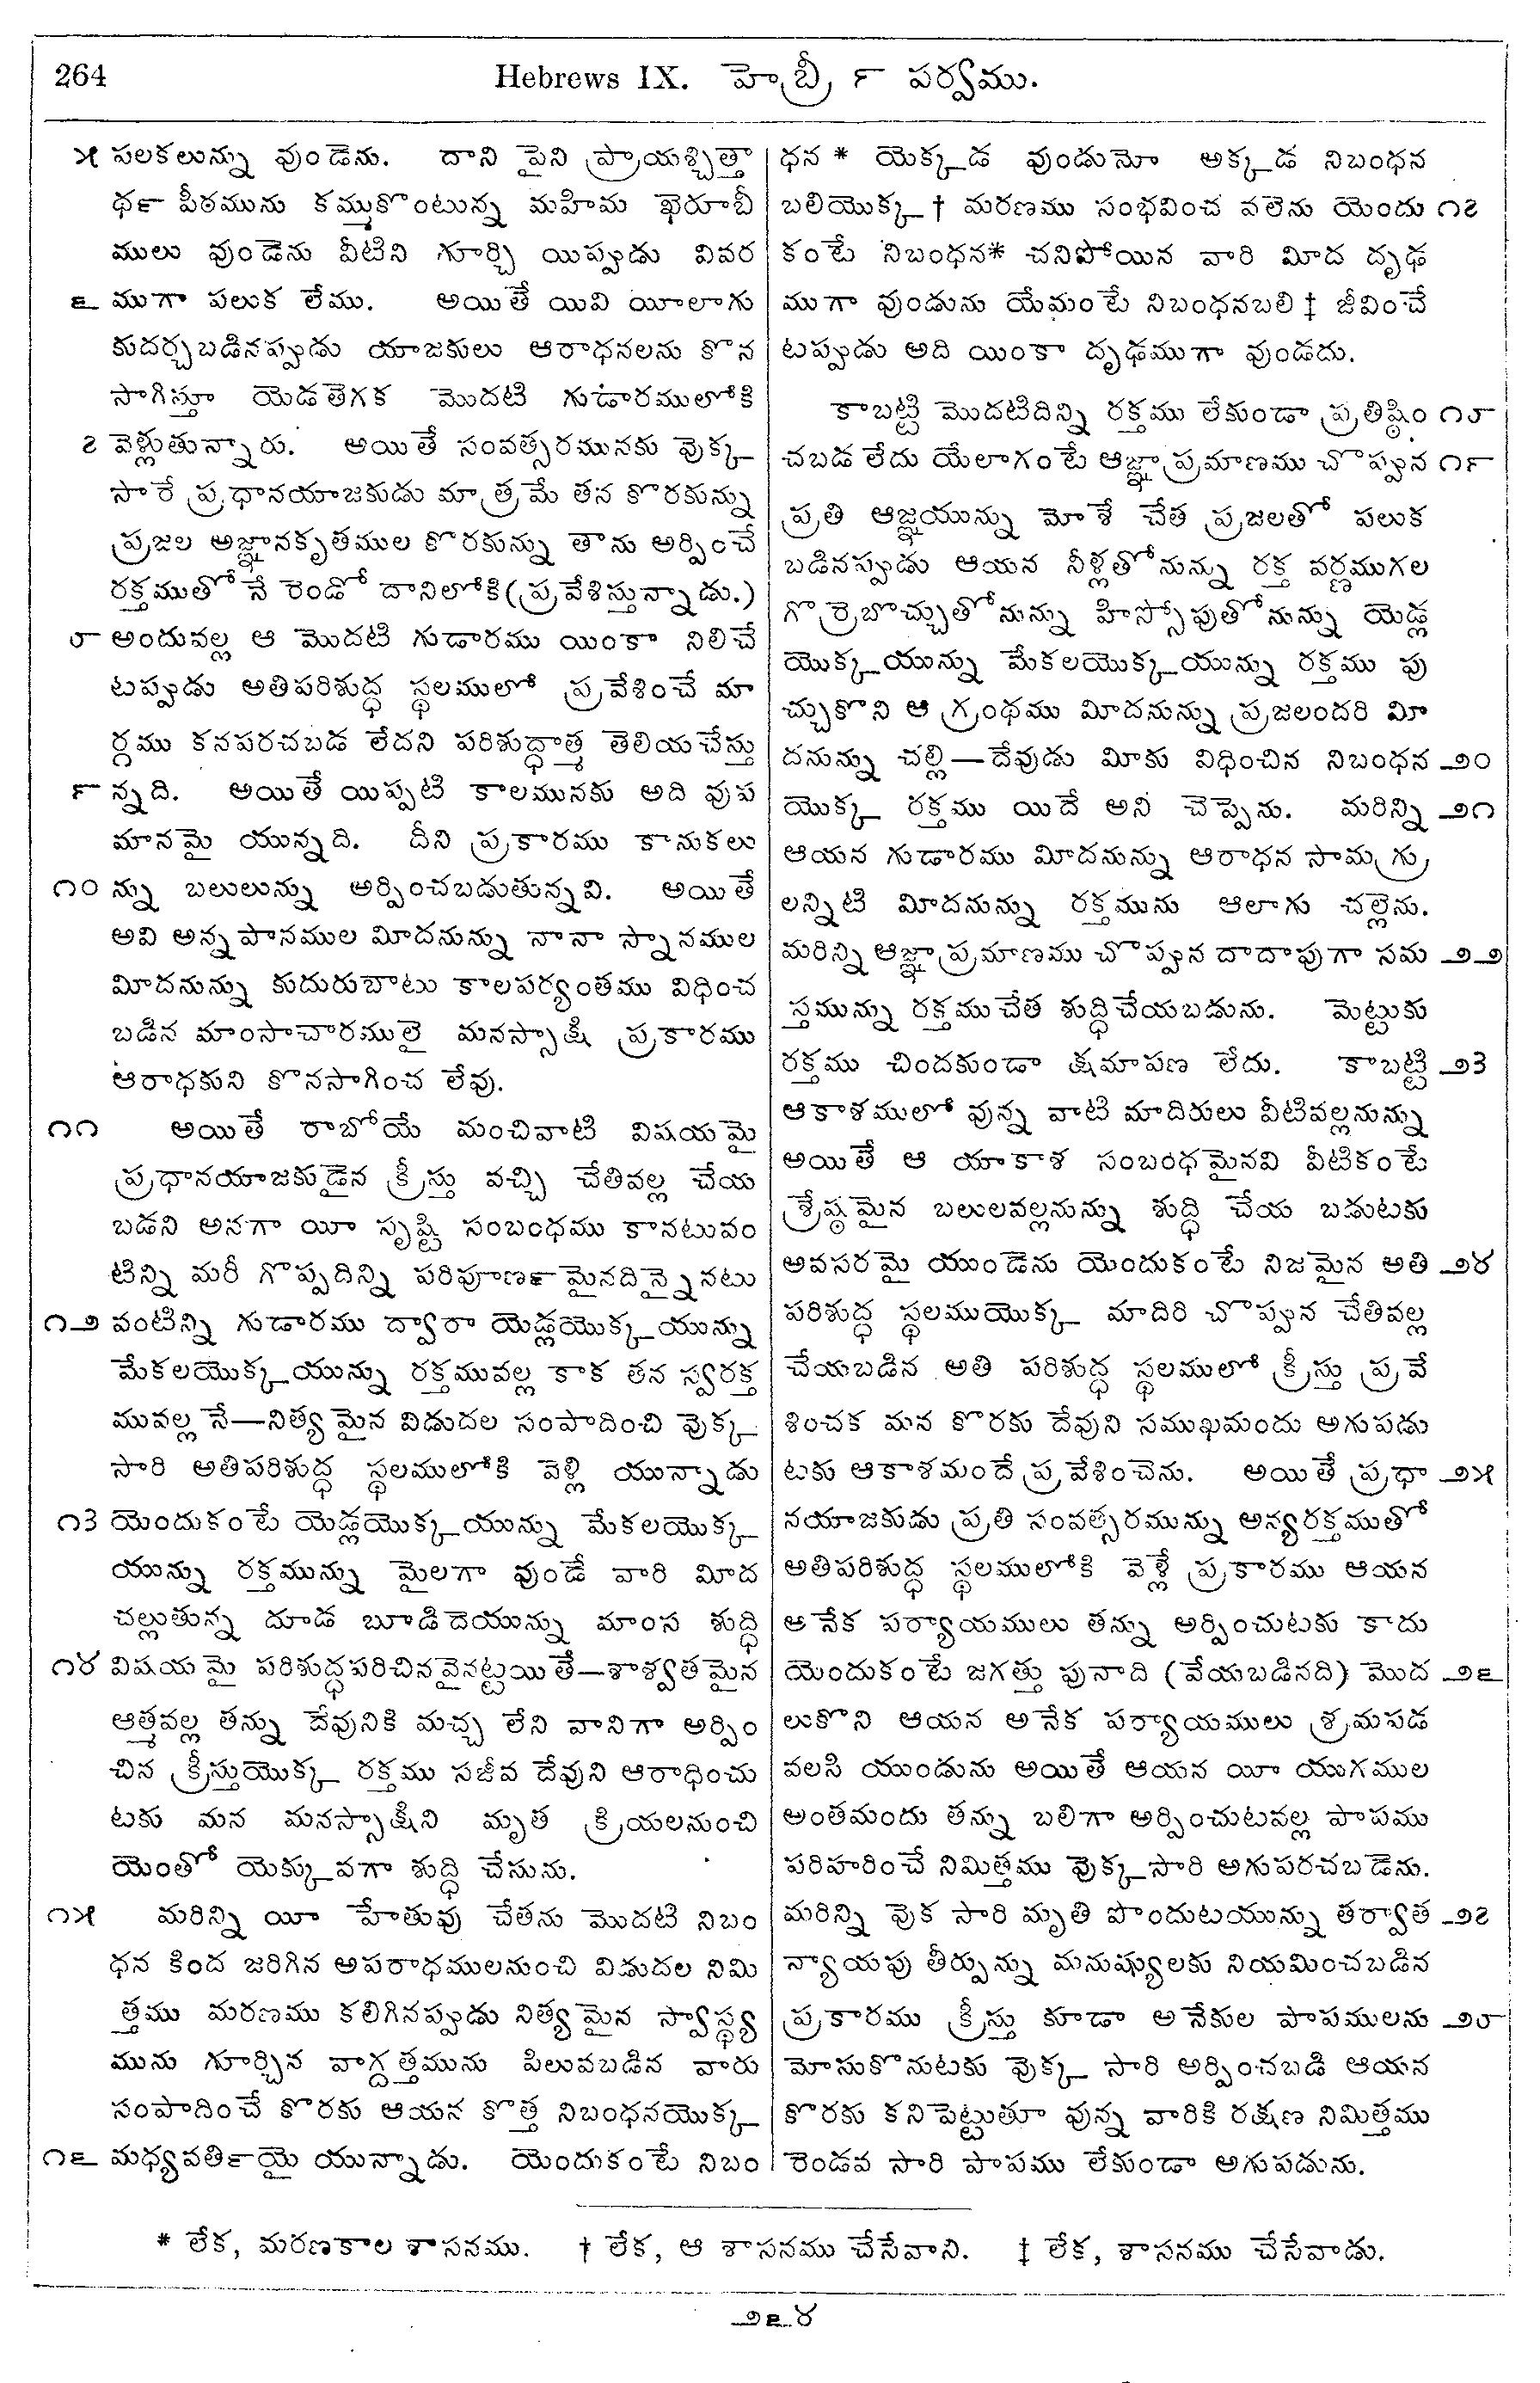 264 Hebrews IX. హెబ్రీ ౯ పర్వము.
౫ పలకలున్ను వుండెను. దాని పైని ప్రాయశ్చిత్తా
ధ౯ పీఠమును కమ్ముకొంటున్న మహిమ ఖెరూబీ
ములు వుండెను వీటిని గూర్చి యిప్పుడు వివర
౬ ముగా పలుక లేము. అయితే యివి యీలాగు
కుదర్చబడినప్పుడు యాజకులు ఆరాధనలను కొన
సాగిస్తూ యెడతెగక మొదటి గుడారములోకి
౭ వెళ్లుతున్నారు. అయితే సంవత్సరమునకు వొక్క
సారే ప్రధానయాజకుడు మాత్రమే తన కొరకున్ను
ప్రజల అజ్ఞానకృతముల కొరకున్ను తాను అర్పించే
రక్తముతోనే రెండో దానిలోకి (ప్రవేశిస్తున్నాడు.)
౮ అందువల్ల ఆ మొదటి గుడారము యింకా నిలిచే
టప్పుడు అతిపరిశుద్ధ స్థలములో ప్రవేశించే మా
ర్గము కనపరచబడ లేదని పరిశుద్ధాత్మ తెలియచేస్తు
౯ న్నది. అయితే యిప్పటి కాలమునకు అది వుప
మానమై యున్నది. దీని ప్రకారము కానుకలు
౧౦ న్ను బలులున్ను అర్పించబడుతున్నవి. అయితే
అవి అన్నపానముల మీదనున్ను నానా స్నానముల
మీదనున్ను కుదురుబాటు కాలపర్యంతము విధించ
బడిన మాంసాచారములై మనస్సాక్షి ప్రకారము
ఆరాధకుని కొనసాగించ లేవు.
౧౧ అయితే రాబోయే మంచివాటి విషయమై
ప్రధానయాజకుడైన క్రీస్తు వచ్చి చేతివల్ల చేయ
బడని అనగా యీ సృష్టి సంబంధము కానటువం
టిన్ని మరీ గొప్పదిన్ని పరిపూణ౯మైనదిన్నైనటు
౧౨ వంటిన్ని గుడారము ద్వారా యెడ్లయొక్కయున్ను
మేకలయొక్కయున్ను రక్తమువల్ల కాక తన స్వరక్త
మువల్లనే—నిత్యమైన విడుదల సంపాదించి వొక్క
సారి అతిపరిశుద్ధ స్థలములోకి వెళ్లి యున్నాడు
౧౩ యెందుకంటే యెడ్లయొక్కయున్ను మేకలయొక్క
యున్ను రక్తమున్ను మైలగా వుండే వారి మీద
చల్లుతున్న దూడ బూడిదెయున్ను మాంస శుద్ధి
౧౪ విషయమై పరిశుద్ధపరిచినవైనట్టయితే—శాశ్వతమైన
ఆత్మవల్ల తన్ను దేవునికి మచ్చ లేని వానిగా అర్పిం
చిన క్రీస్తుయొక్క రక్తము సజీవ దేవుని ఆరాధించు
టకు మన మనస్సాక్షిని మృత క్రియలనుంచి
యెంతో యెక్కువగా శుద్ధి చేసును.
౧౫ మరిన్ని యీ హేతువు చేతను మొదటి నిబం
ధన కింద జరిగిన అపరాధములనుంచి విడుదల నిమి
త్తము మరణము కలిగినప్పుడు నిత్యమైన స్వాస్థ్య
మును గూర్చిన వాగ్దత్తమును పిలువబడిన వారు
సంపాదించే కొరకు ఆయన కొత్త నిబంధనయొక్క
౧౬ మధ్యవతి౯యై యున్నాడు. యెందుకంటే నిబం
ధన * యెక్కడ వుండునో అక్కడ నిబంధన
బలియొక్క † మరణము సంభవించ వలెను యెందు ౧౭
కంటే నిబంధన* చనిపోయిన వారి మీద దృఢ
ముగా వుండును యేమంటే నిబంధనబలి ‡ జీవించే
టప్పుడు అది యింకా దృఢముగా వుండదు.
కాబట్టి మొదటిదిన్ని రక్తము లేకుండా ప్రతిష్ఠిం ౧౮
చబడ లేదు యేలాగంటే ఆజ్ఞాప్రమాణము చొప్పున ౧౯
ప్రతి ఆజ్ఞయున్ను మోశే చేత ప్రజలతో పలుక
బడినప్పుడు ఆయన నీళ్లతోనున్ను రక్త వర్ణముగల
గొర్రెబొచ్చుతోనున్ను హిస్సోపుతోనున్ను యెడ్ల
యొక్కయున్ను మేకలయొక్కయున్ను రక్తము పు
చ్చుకొని ఆ గ్రంథము మీదనున్ను ప్రజలందరి మీ
దనున్ను చల్లి—దేవుడు మీకు విధించిన నిబంధన ౨౦
యొక్క రక్తము యిదే అని చెప్పెను. మరిన్ని ౨౧
ఆయన గుడారము మీదనున్ను ఆరాధన సామగ్రు
లన్నిటి మీదనున్ను రక్తమును ఆలాగు చల్లెను.
మరిన్ని ఆజ్ఞాప్రమాణము చొప్పున దాదాపుగా సమ ౨౨
స్తమున్ను రక్తముచేత శుద్ధిచేయబడును. మెట్టుకు
రక్తము చిందకుండా క్షమాపణ లేదు. కాబట్టి ౨౩
ఆకాశములో వున్న వాటి మాదిరులు వీటివల్లనున్ను
అయితే ఆ యాకాశ సంబంధమైనవి వీటికంటే
శ్రేష్ఠమైన బలులవల్లనున్ను శుద్ధి చేయ బడుటకు
అవసరమై యుండెను యెందుకంటే నిజమైన అతి ౨౪
పరిశుద్ధ స్థలముయొక్క మాదిరి చొప్పున చేతివల్ల
చేయబడిన అతి పరిశుద్ధ స్థలములో క్రీస్తు ప్రవే
శించక మన కొరకు దేవుని సముఖమందు అగుపడు
టకు ఆకాశమందే ప్రవేశించెను. అయితే ప్రధా ౨౫
నయాజకుడు ప్రతి సంవత్సరమున్ను అన్యరక్తముతో
అతిపరిశుద్ధ స్థలములోకి వెళ్లే ప్రకారము ఆయన
అనేక పర్యాయములు తన్ను అర్పించుటకు కాదు
యెందుకంటే జగత్తు పునాది (వేయబడినది) మొద ౨౬
లుకొని ఆయన అనేక పర్యాయములు శ్రమపడ
వలసి యుండును అయితే ఆయన యీ యుగముల
అంతమందు తన్ను బలిగా అర్పించుటవల్ల పాపము
పరిహరించే నిమిత్తము వొక్క సారి అగుపరచబడెను.
మరిన్ని వొక సారి మృతి పొందుటయున్ను తర్వాత ౨౭
న్యాయపు తీర్పున్ను మనుష్యులకు నియమించబడిన
ప్రకారము క్రీస్తు కూడా అనేకుల పాపములను ౨౮
మోసుకొనుటకు వొక్క సారి అర్పించబడి ఆయన
కొరకు కనిపెట్టుతూ వున్న వారికి రక్షణ నిమిత్తము
రెండవ సారి పాపము లేకుండా అగుపడును.
* లేక, మరణకాల శాసనము. † లేక, ఆ శాసనము చేసేవాని. ‡ లేక, శాసనము చేసేవాడు.
౨౬౪